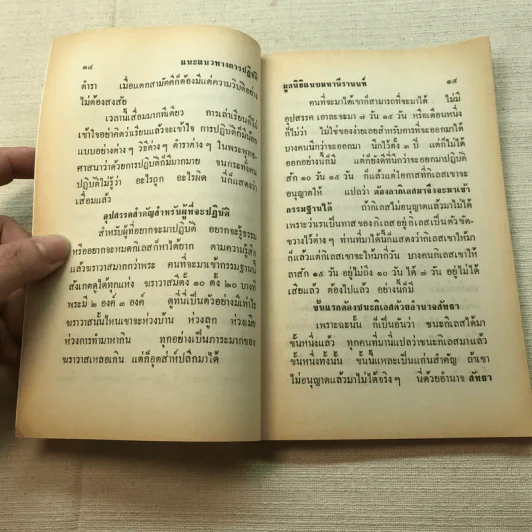 ๑๔ แนะแนวทางการปฏิบัติ
ตำรา เมื่อแตกสามัคคีก็ต้องมีแต่ความวิบัติอย่าง
ไม่ต้องสงสัย
เวลานี้เสื่อมมากทีเดียว การเล่าเรียนก็ไม่
เข้าใจอย่าคิดว่าเรียนแล้วจะเข้าใจ การปฏิบัติก็มี
แบบอย่างต่าง ๆ วิธีต่าง ๆ ตำราต่าง ๆ ในพระพุทธ-
ศาสนาว่าด้วยการปฏิบัติก็มีมากมาย จนกระทั่ง
ปฏิบัติไม่รู้ว่า อะไรถูก อะไรผิด นี่ก็แสดงว่า
เสื่อมแล้ว
อุปสรรคสำคัญสำหรับผู้ที่จะปฏิบัติ
สำหรับผู้ที่อยากจะมาปฏิบัติ อยากจะรู้ธรรม
หรืออยากจะหมดกิเลสก็หาได้ยาก ตามความรู้สึก
แล้วฆราวาสมากกว่าพระ คนที่จะมาเข้ากรรมฐานนี้
สังเกตดูได้ทุกแห่ง ฆราวาสมีตั้ง ๑๐ ตั้ง ๒๐ บางที
พระมี ๒ องค์ ๓ องค์ ดูที่นี่เป็นตัวอย่างมีเท่าไร
ฆราวาสนั้นไหนเขาจะห่วงบ้าน ห่วงลูก ห่วงเมีย
ห่วงการทำมาหากิน ทุกอย่างเป็นภาระมากของ
ฆราวาสเหลือเกิน แต่ก็อุตส่าห์ปลีกมาได้
มูลนิธิแนบมหานีรานนท์ ๑๕
คนที่จะมาได้เขาก็สามารถที่จะมาได้ ไม่มี
อุปสรรค เอาละจะมา ๗ วัน ๑๕ วัน หรือเดือนหนึ่ง
ก็ไม่ว่า ไม่ใช่ของง่ายเลยสำหรับการที่จะออกมาได้
บางคนนึกว่าจะออกมา นึกไว้ตั้ง ๓ ปี แต่ก็ไม่ได้
ออกอย่างนี้ก็มี แต่ก็ยังดีที่นึกว่าจะออกมาปฏิบัติ
สัก ๑๐ วัน ๑๕ วัน ก็แล้วแต่โอกาสที่กิเลสเขาจะ
อนุญาตให้ แปลว่า ต้องลากิเลสมาจึงจะมาเข้า
กรรมฐานได้ ถ้ากิเลสไม่อนุญาตแล้วมาไม่ได้
เพราะว่าเราเป็นทาสของกิเลสอยู่ กิเลสเป็นตัวขัด-
ขวางไว้ต่าง ๆ ท่านที่มาได้นี้ก็แสดงว่ากิเลสเขาให้มา
ก็แล้วแต่กิเลสเขาจะให้มากี่วัน บางคนกิเลสเขาให้
ลาสัก ๑๕ วัน อยู่ไม่ถึง ๑๐ วัน ได้ ๗ วัน อยู่ไม่ได้
เสียแล้ว ต้องไปแล้ว อย่างนี้ก็มี
ขั้นแรกต้องชนะกิเลสด้วยอำนาจศรัทธา
เพราะฉะนั้น ก็เป็นอันว่า ชนะกิเลสได้มา
ขั้นหนึ่งแล้ว ทุกคนที่มานี่แปลว่าชนะกิเลสมาแล้ว
ขั้นหนึ่งทั้งนั้น ขั้นนี้แหละเป็นแก่นสำคัญ ถ้าเขา
ไม่อนุญาตแล้วมาไม่ได้จริง ๆ นี่ด้วยอำนาจ ศรัทธา